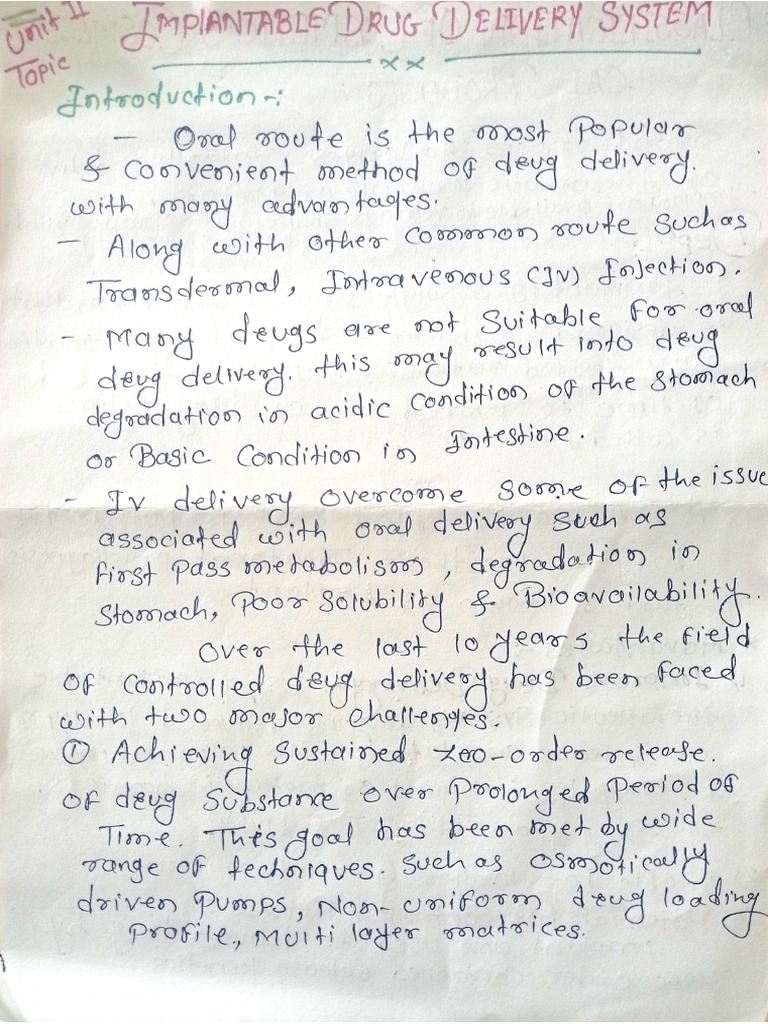 Unit II
Topic
IMPLANTABLE DRUG DELIVERY SYSTEM
xx
Introduction -:
- Oral route is the most Popular
& convenient method of drug delivery.
with many advantages.
- Along with other common route such as
Transdermal, Intravenous (IV) Injection.
- Many drugs are not Suitable for oral
drug delivery. this may result into drug
degradation in acidic condition of the stomach
or Basic Condition in Intestine.
- IV delivery overcome some of the issue
associated with oral delivery such as
first pass metabolism, degradation in
stomach, Poor solubility & Bioavailability.
Over the last 10 years the field
of controlled drug delivery has been faced
with two major challenges.
① Achieving sustained zeo-order release.
of drug substance over Prolonged Period of
Time. This goal has been met by wide
range of techniques. such as osmotically
driven Pumps, Non-uniform drug loading
Profile, Multi layer matrices.